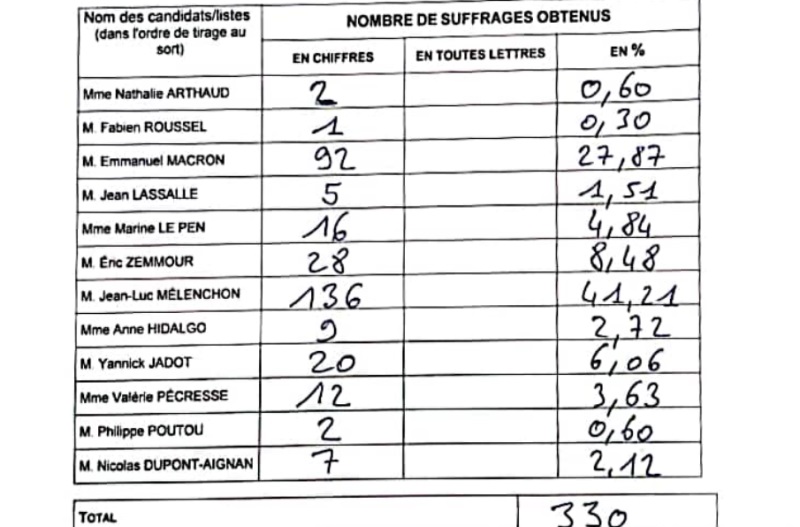 Nom des candidats/listes
(dans l'ordre de tirage au
sort)
NOMBRE DE SUFFRAGES OBTENUS
EN CHIFFRES EN TOUTES LETTRES EN %
Mme Nathalie ARTHAUD 2 0,60
M. Fabien ROUSSEL 1 0,30
M. Emmanuel MACRON 92 27,87
M. Jean LASSALLE 5 1,51
Mme Marine LE PEN 16 4,84
M. Éric ZEMMOUR 28 8,48
M. Jean-Luc MÉLENCHON 136 41,21
Mme Anne HIDALGO 9 2,72
M. Yannick JADOT 20 6,06
Mme Valérie PÉCRESSE 12 3,63
M. Philippe POUTOU 2 0,60
M. Nicolas DUPONT-AIGNAN 7 2,12
TOTAL 330